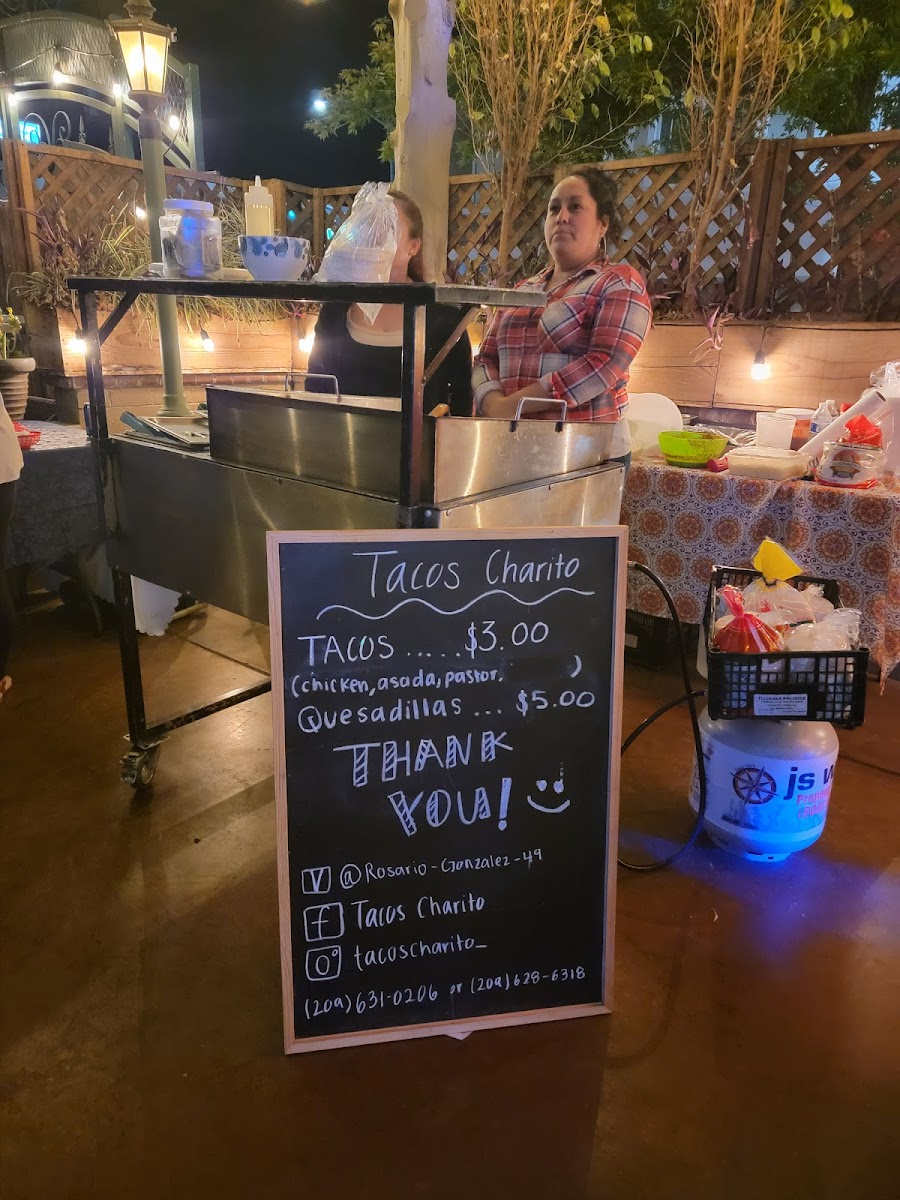 Tacos Charito
TACOS ..... $3.00
(chicken, asada, pastor, )
Quesadillas ... $5.00
THANK
YOU!
@Rosario-Gonzalez-49
f Tacos Charito
tacoscharito_
(209) 631-0206 or (209) 628-6318
js